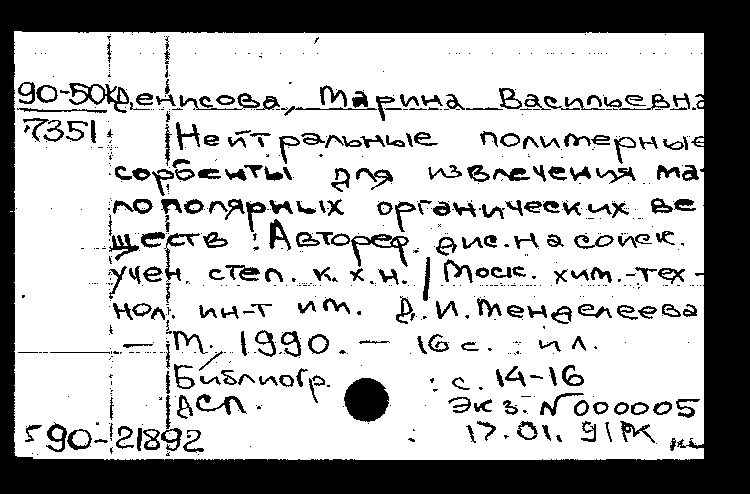 90-50к Денисова, Марина Васильевна
7351 Нейтральные полимерные
сорбенты для извлечения ма-
лополярных органических ве-
ществ : Автореф. дис. на соиск.
учен. степ. к. х. н. / Моск. хим.-тех-
нол. ин-т им. Д. И. Менделеева
— М. 1990. — 16 с. : ил.
Библиогр. : с. 14-16
ДСП. Экз. N 000005
590-21892 17.01.91 РК